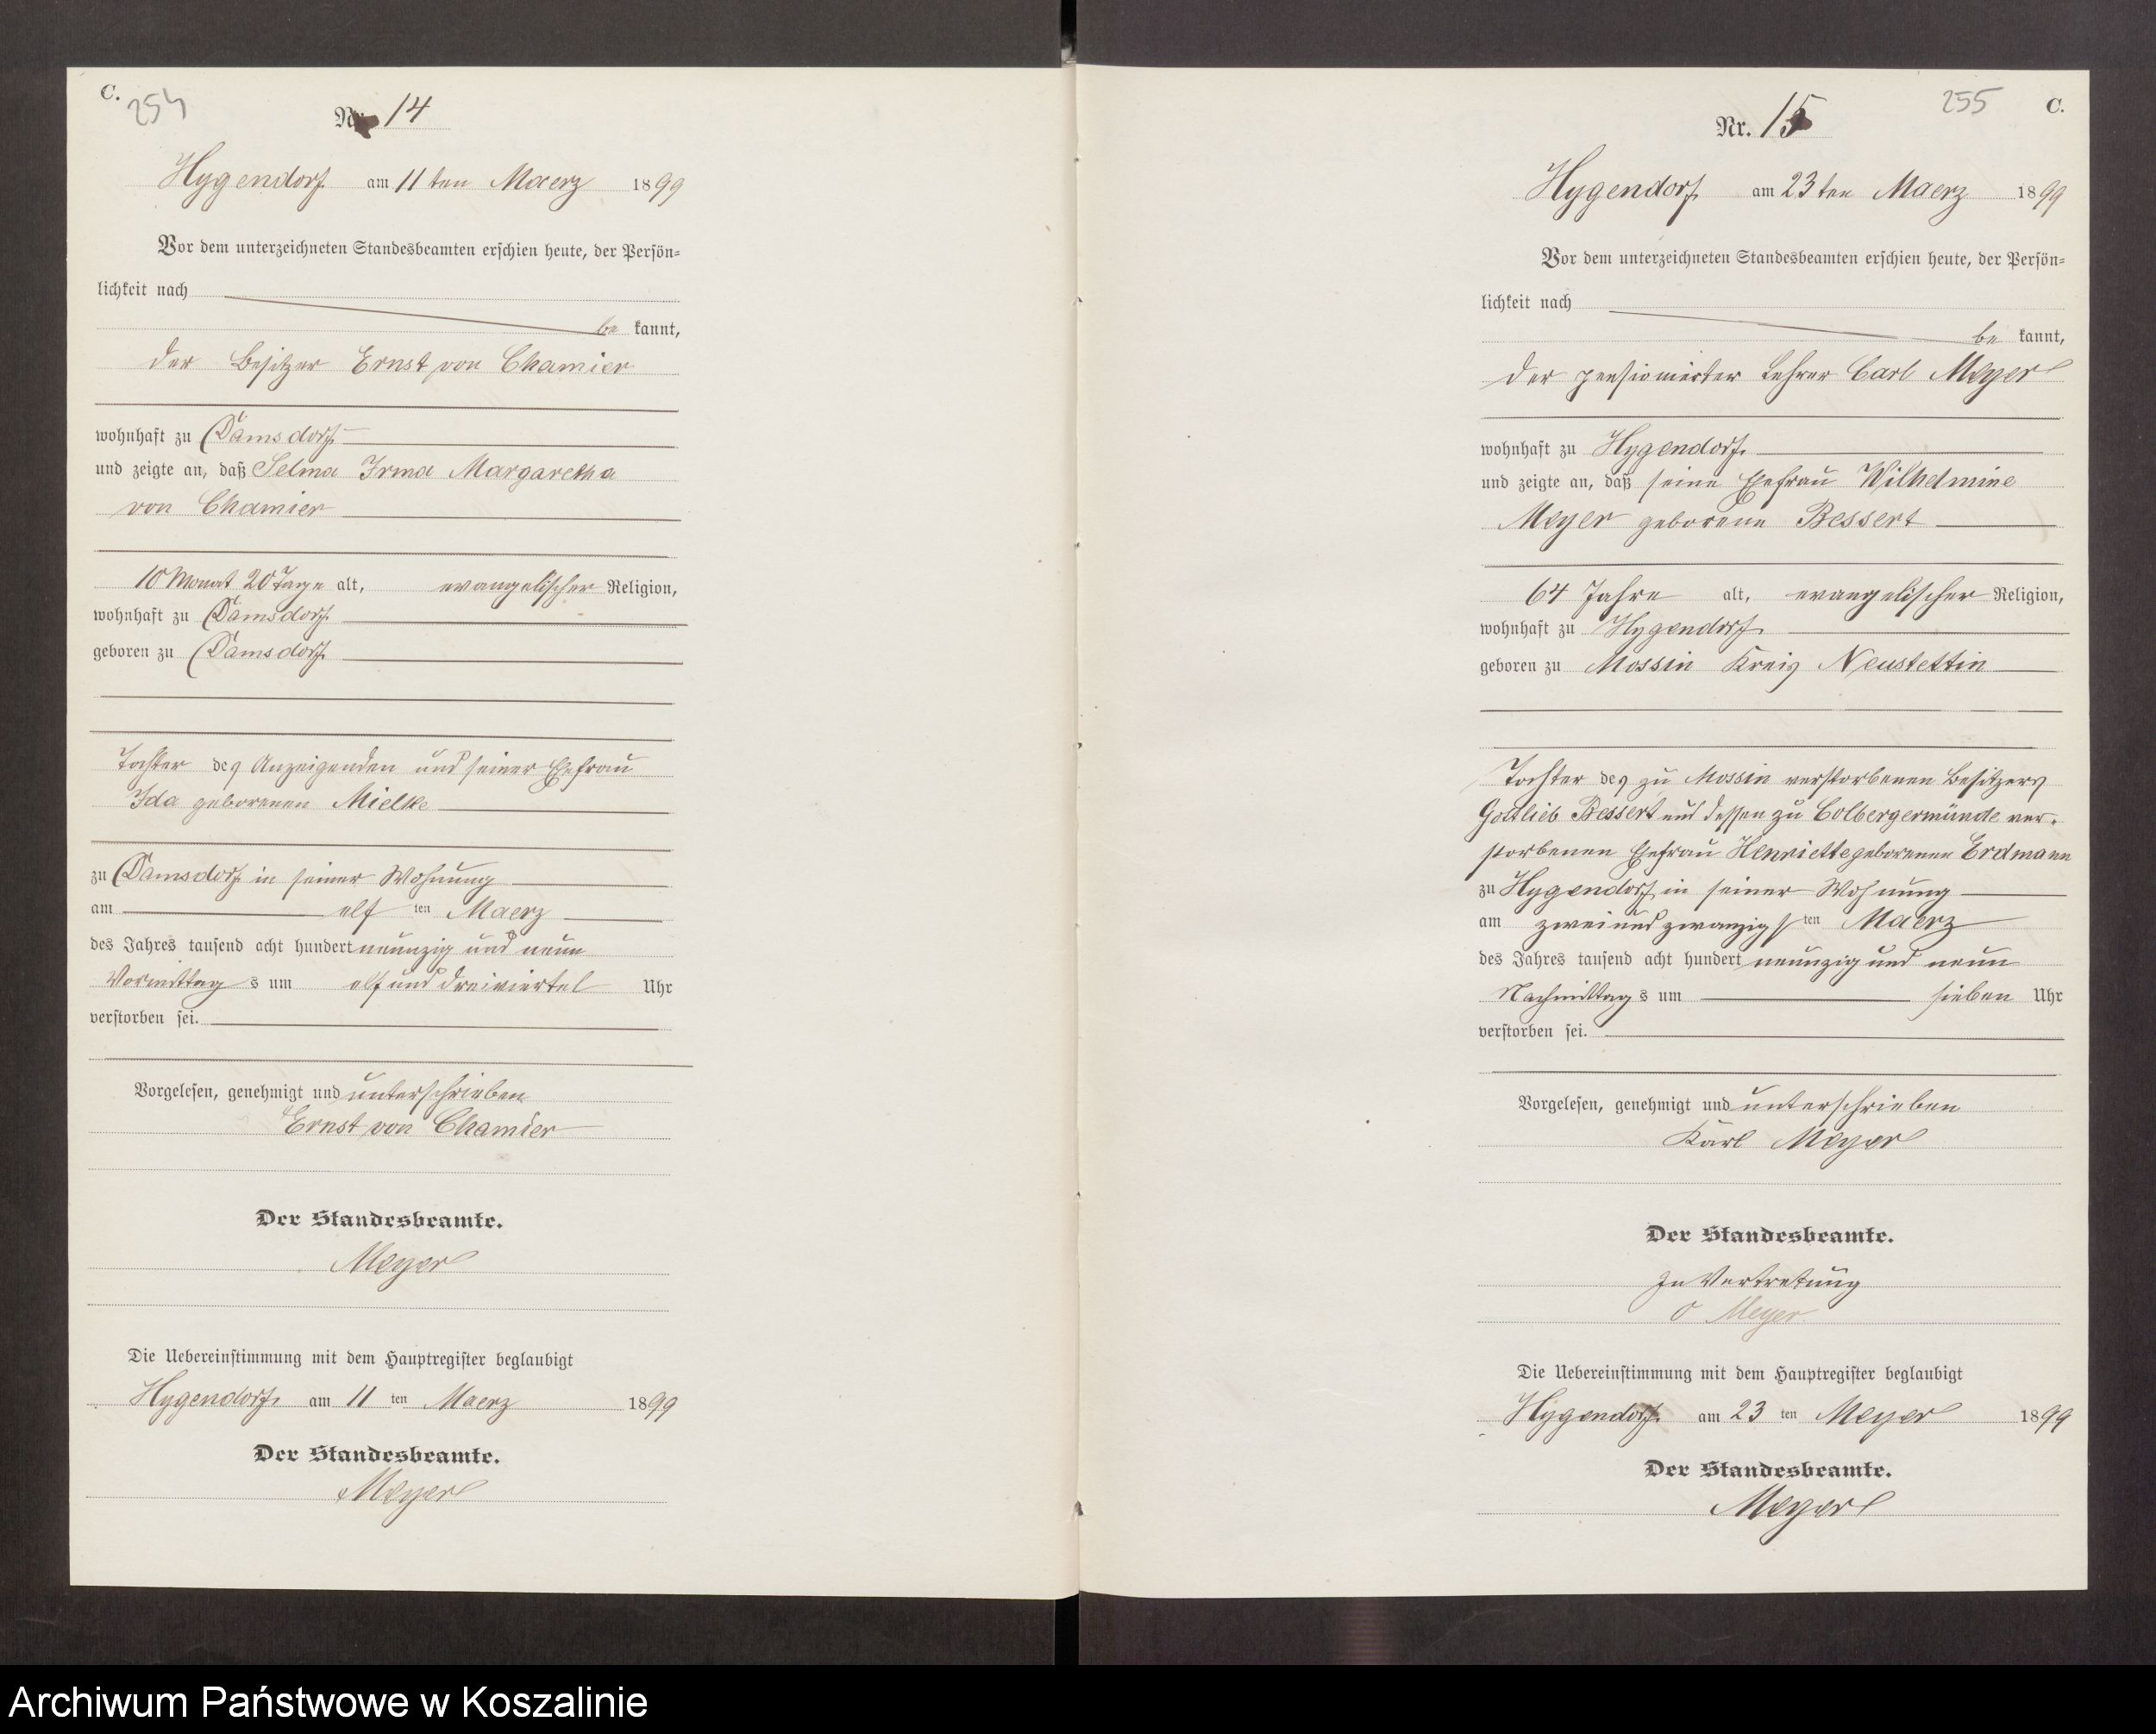 C.
254
Nr. 14
Hygendorf am 11 ten Maerz 1899
Vor dem unterzeichneten Standesbeamten erschien heute, der Persön=
lichkeit nach
be kannt,
der Besitzer Ernst von Chamier
wohnhaft zu Damsdorf
und zeigte an, daß Selma Irma Margaretha
von Chamier
10 Monat 20 Tage alt, evangelischer Religion,
wohnhaft zu Damsdorf
geboren zu Damsdorf
Tochter des Anzeigenden und seiner Ehefrau
Ida geborenen Mielke
zu Damsdorf in seiner Wohnung
am elf ten Maerz
des Jahres tausend acht hundert neunzig und neun
Vormittag s um elf und dreiviertel Uhr
verstorben sei.
Vorgelesen, genehmigt und unterschrieben
Ernst von Chamier
Der Standesbeamte.
Meyer
Die Uebereinstimmung mit dem Hauptregister beglaubigt
Hygendorf am 11 ten Maerz 1899
Der Standesbeamte.
Meyer
255
C.
Nr. 15
Hygendorf am 23 ten Maerz 1899
Vor dem unterzeichneten Standesbeamten erschien heute, der Persön=
lichkeit nach
be kannt,
der pensionierter Lehrer Carl Meyer
wohnhaft zu Hygendorf
und zeigte an, daß seine Ehefrau Wilhelmine
Meyer geborene Bessert
64 Jahre alt, evangelischer Religion,
wohnhaft zu Hygendorf
geboren zu Mossin Kreis Neustettin
Tochter des zu Mossin verstorbenen Besitzers
Gottlieb Bessert und dessen zu Colbergermünde ver-
storbenen Ehefrau Henriette geborenen Erdmann
zu Hygendorf in seiner Wohnung
am zwei und zwanzigs ten Maerz
des Jahres tausend acht hundert neunzig und neun
Nachmittag s um sieben Uhr
verstorben sei.
Vorgelesen, genehmigt und unterschrieben
Karl Meyer
Der Standesbeamte.
In Vertretung
O Meyer
Die Uebereinstimmung mit dem Hauptregister beglaubigt
Hygendorf am 23 ten Meyer 1899
Der Standesbeamte.
Meyer
Archiwum Państwowe w Koszalinie